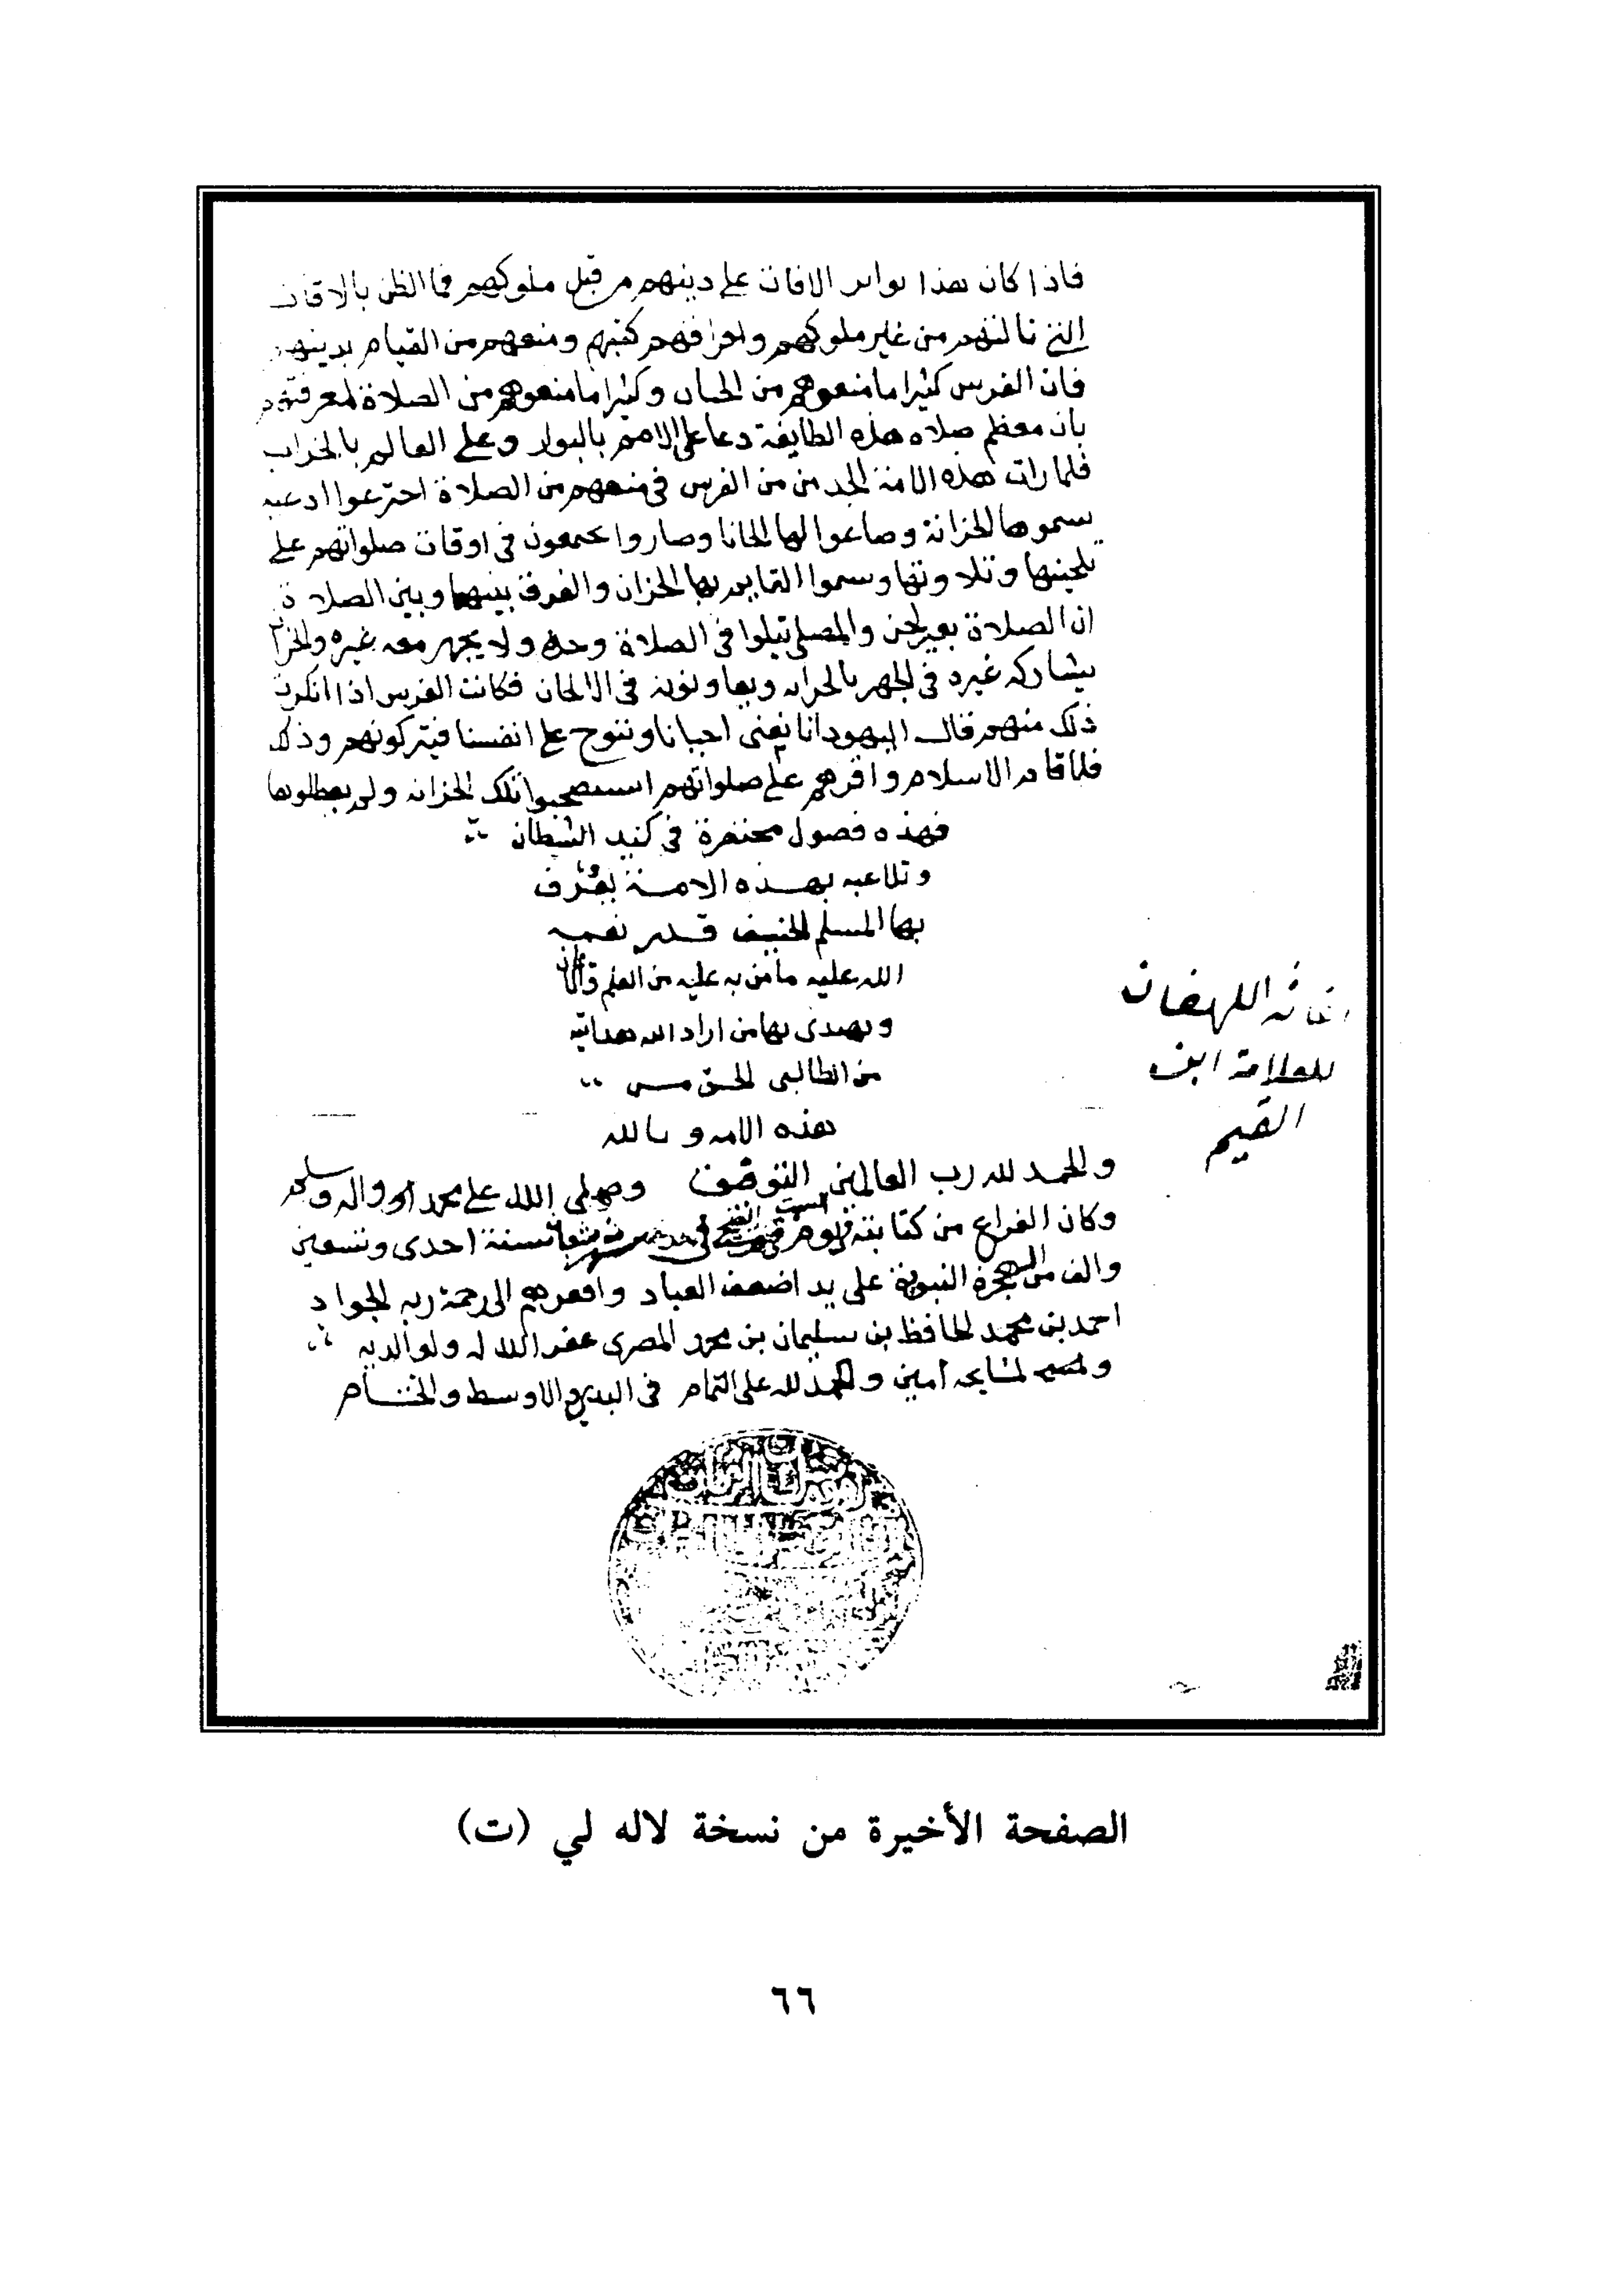 فاذا كان هذا تواتر الافات على دينهم من قبل ملوكهم فما الظن بالافات
التي نالتهم من غير ملوكهم واحراقهم كتبهم ومنعهم من القيام بدينهم
فان الفرس كثيرا ما منعوهم من الختان وكثيرا ما منعوهم من الصلاة لمعرفتهم
بان معظم صلاه هذه الطايفة دعا على الامم بالبوار وعلى العالم بالخراب
فلما رات هذه الامة الجد من الفرس في منعهم من الصلاة اخترعوا ادعية
سموها الخزانة وصاغوا لها الحانا وصاروا يجمعون في اوقات صلواتهم على
تلحينها وتلاوتها وسموا القايم بها الخزان والفرق بينها وبين الصلاة
ان الصلاة بغير لحن والمصلي يتلوا في الصلاة وحده ولا يجهر معه غيره والخزان
يشاركه غيره في الجهر بالخزانه ويعاونونه في الالحان فكانت الفرس اذا انكرت
ذلك منهم قالت اليهود انا نغنى احيانا وننوح على انفسنا فيتركونهم وذلك
فلما قام الاسلام واقرهم على صلواتهم استصحبوا تلك الخزانه ولم يعطلوها
فهذه فصول مختصرة في كيد الشيطان
وتلاعبه بهذه الامة يعرف
بها المسلم الحنيف قدر نعمة
الله عليه ما من به عليه من العلم والايمان
ويهدى بها من اراد الله هدايته
من الطالبي الحق من
هذه الامه وبالله
والحمد لله رب العالمين التوفيق وصلى الله على محمد واله وسلم
وكان الفراغ من كتابته في يوم السبت سنة احدى وتسعين
والف من الهجرة النبوية على يد اضعف العباد وافقرهم الى رحمة ربه الجواد
احمد بن محمد الحافظ بن سليمان بن محمد المصرى غفر الله له ولوالديه
لمشايخه امين والحمد لله على التمام في البدء والاوسط والختام
اغاثه اللهفان
للعلامة ابن
القيم
الصفحة الأخيرة من نسخة لاله لي (ت)
٦٦